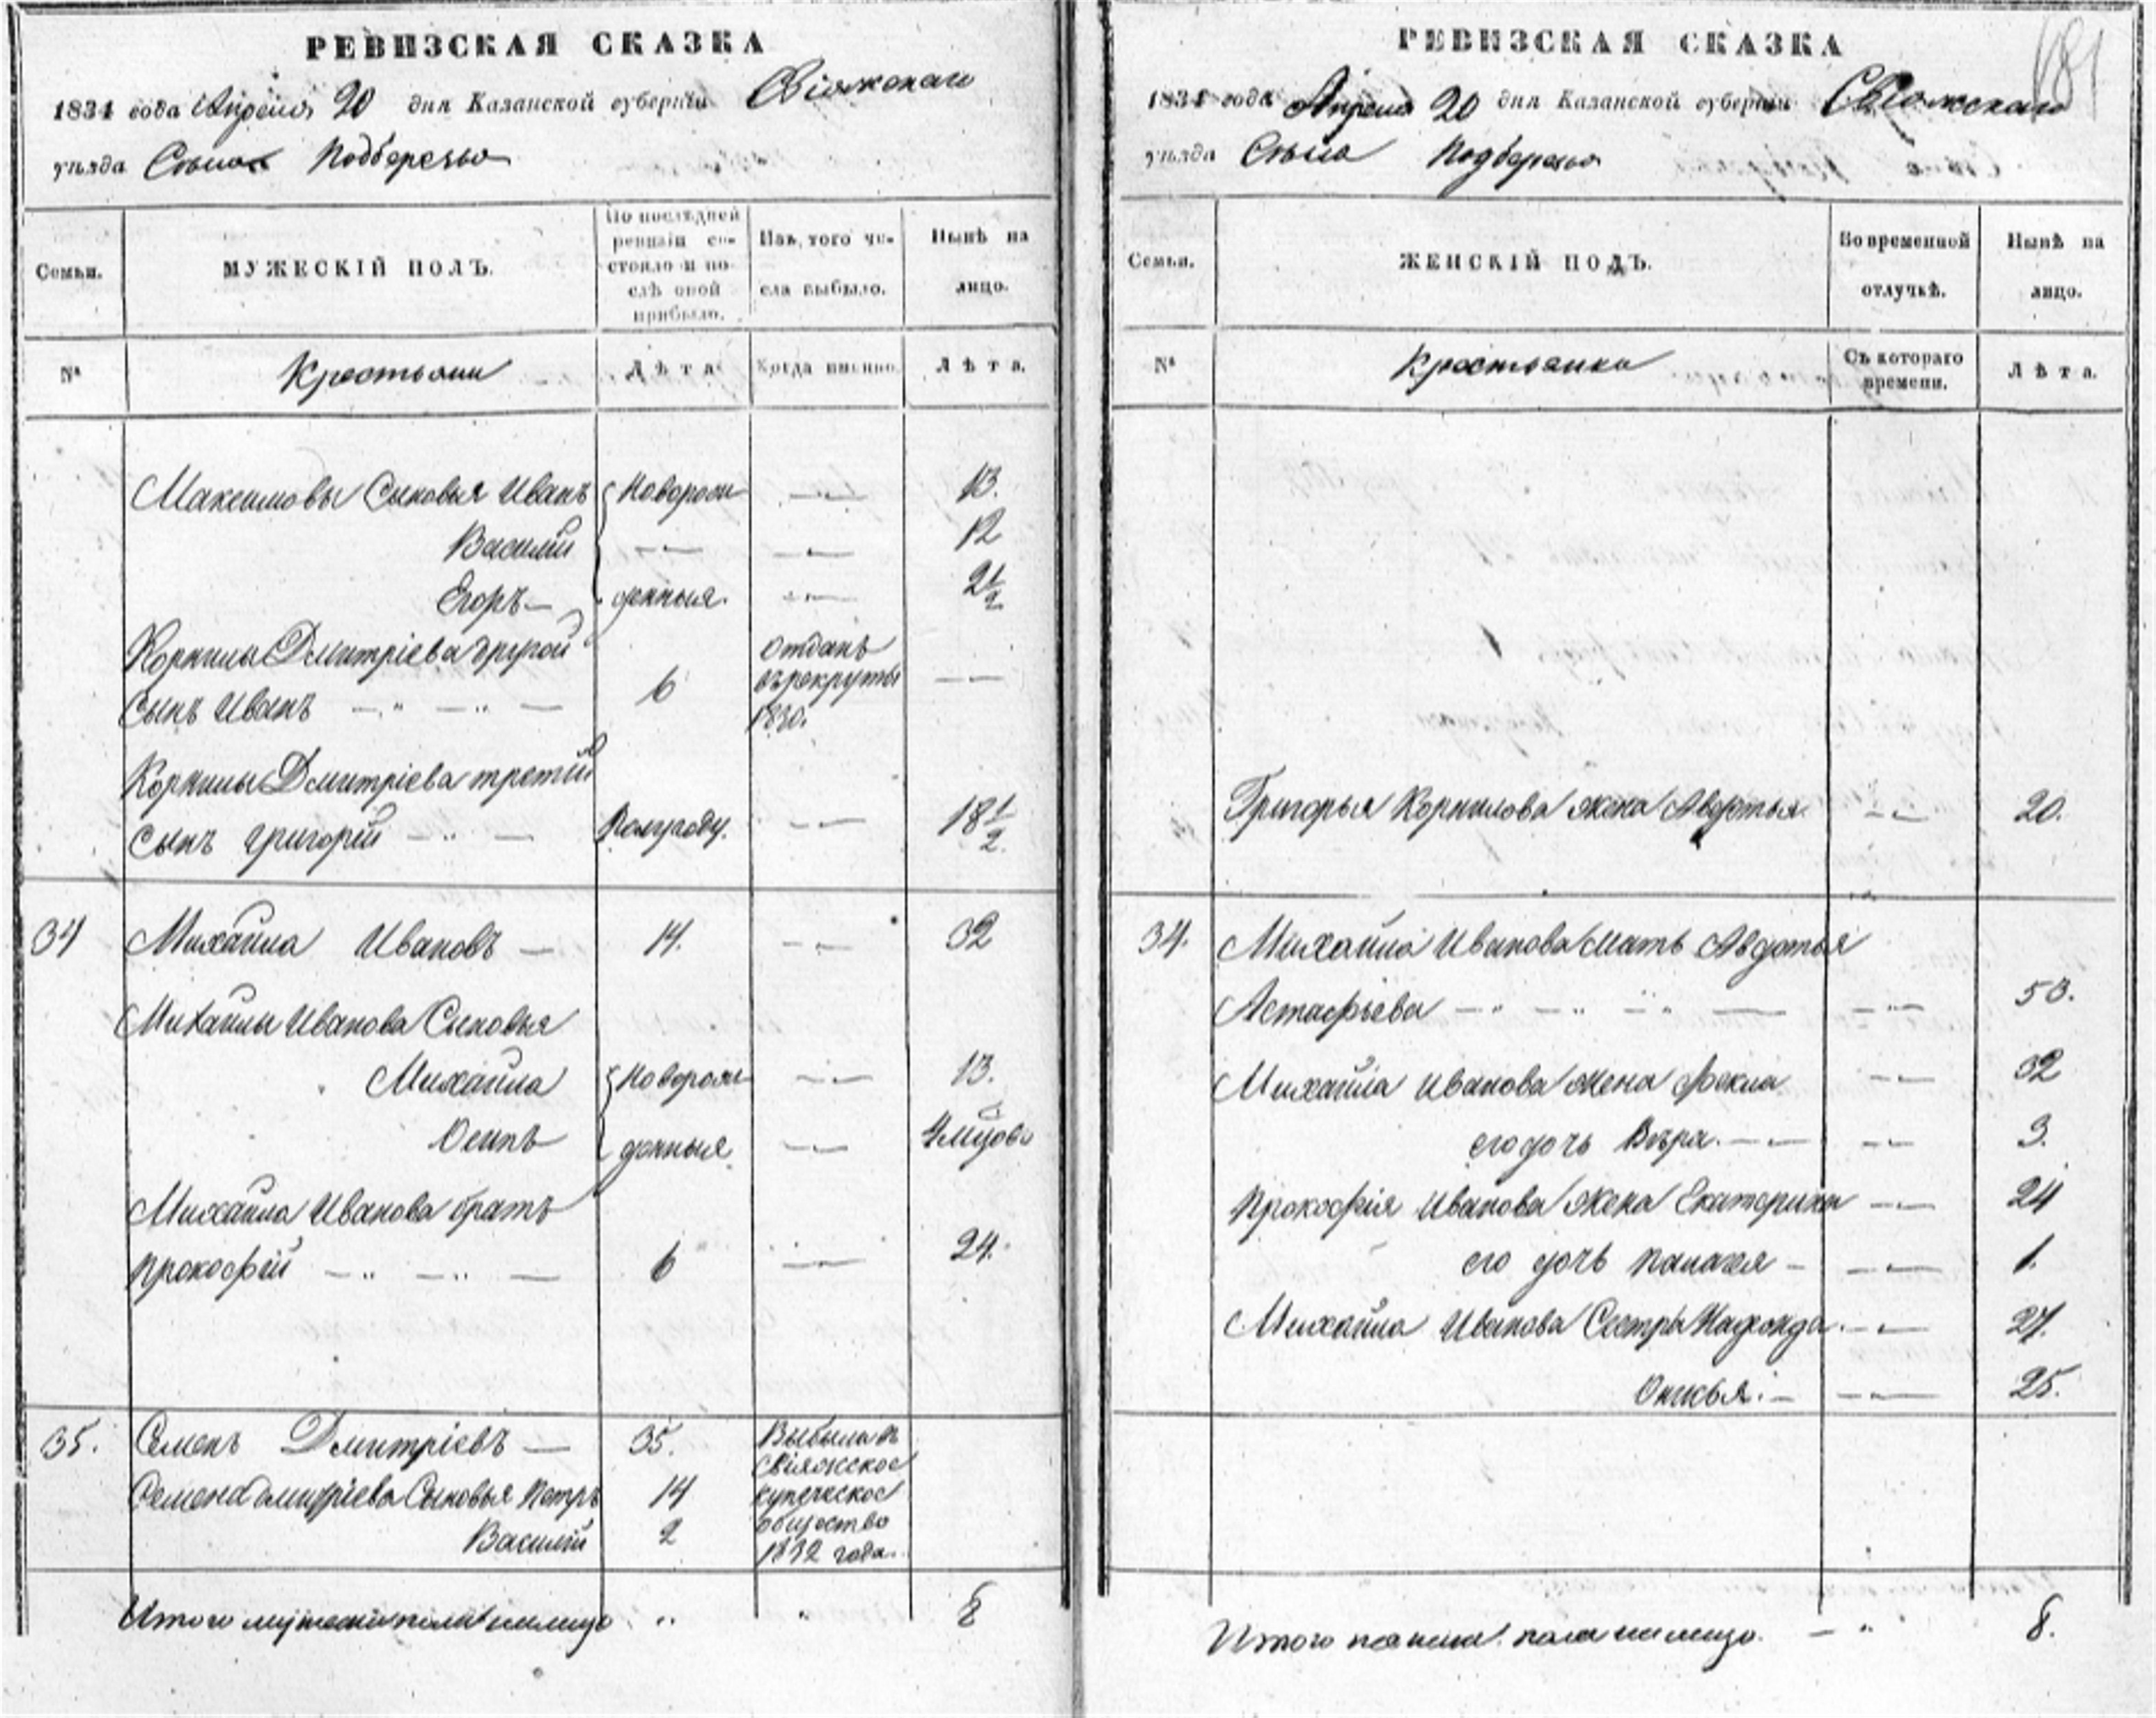 РЕВИЗСКАЯ СКАЗКА
1834 года Апреля 20 дня Казанской губернии Свіяжскаго
уѣзда Села Подберезья
Семьи.
МУЖЕСКІЙ ПОЛЪ.
По послѣдней
ревизіи со-
стояло и по-
слѣ оной
прибыло.
Изъ того чи-
сла выбыло.
Нынѣ на
лицо.
№
Крестьяни
Лѣта
Когда имянно.
Лѣта.
Максимовы Сыновья Иванъ Новорож — 13.
Василій — — 12
Егоръ — денныя. — 2 1/2
Корнилы Дмитріева другой
сынъ Иванъ — " — " — 6 Отданъ
въ рекруты
1830. —
Корнилы Дмитріева третій
сынъ Григорій — " — Полугоду. — 18 1/2
34 Михайла Ивановъ — 14. — 32
Михайлы Иванова Сыновья
Михайла Новорож — 13.
Осипъ денныя — 4 мѣцовъ
Михайла Иванова братъ
Прокофій — " — " — 6 — 24.
35. Семенъ Дмитріевъ — 35. Выбыла въ
Свіяжское
купеческое
общество
1832 года.
Семена Дмитріева Сыновья Петръ 14
Василій 2
Итого мужеска пола на лицо " " 8
РЕВИЗСКАЯ СКАЗКА
181
1834 года Апреля 20 дня Казанской губернии Свіяжскаго
уѣзда Села Подберезья
Семьи.
ЖЕНСКІЙ ПОЛЪ.
Во временной
отлучкѣ.
Нынѣ на
лицо.
№
Крестьянка
Съ котораго
времени.
Лѣта.
Григорья Корнилова жена Авдотья — 20.
34. Михайла Иванова мать Авдотья
Астафьева — " — " — " — — 53.
Михайла Иванова жена Фекла — 32
его дочь Вѣра. — — 3.
Прокофія Иванова жена Екатерина — 24
его дочь Палагея — — 1.
Михайла Иванова Сестры — 27.
— 25.
Итого женска пола на лицо. — " 8.